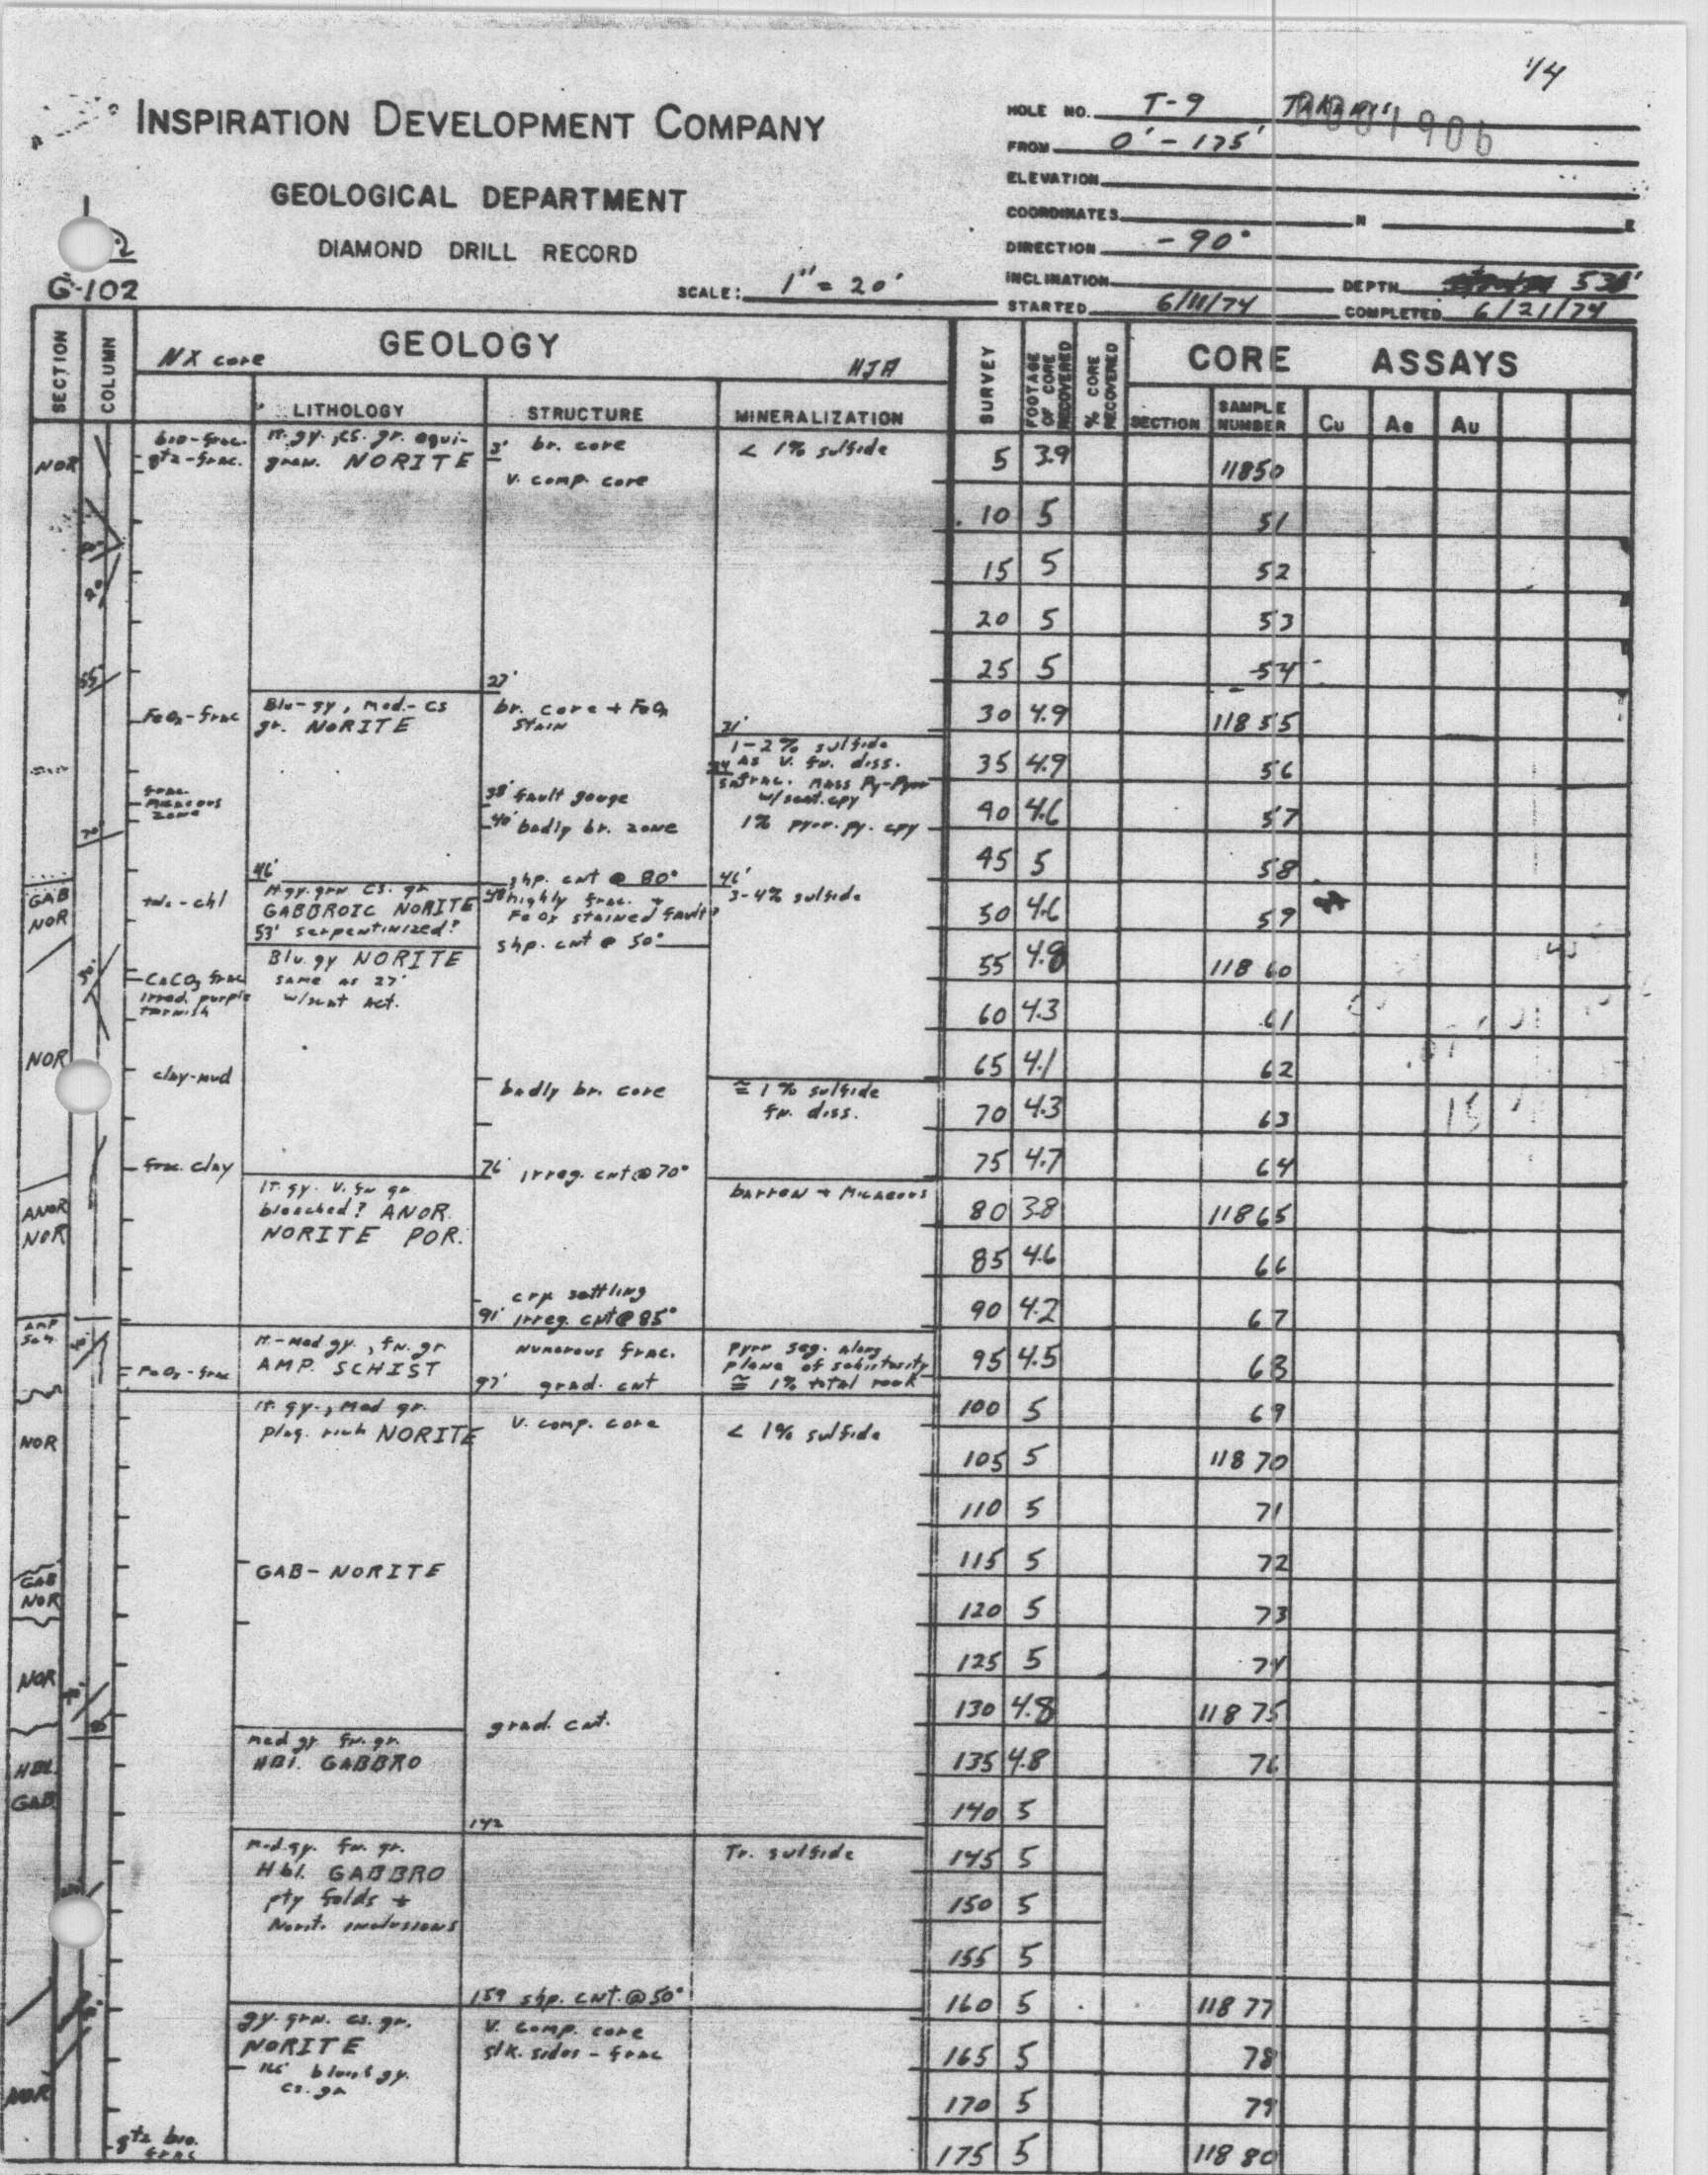 1/4
INSPIRATION DEVELOPMENT COMPANY
GEOLOGICAL DEPARTMENT
DIAMOND DRILL RECORD
G-102
SCALE: 1" = 20'
HOLE NO. T-9
FROM 0' - 175'
ELEVATION
COORDINATES N E
DIRECTION -90°
INCLINATION DEPTH 530'
STARTED 6/11/74 COMPLETED 6/21/74
SECTION COLUMN NX core GEOLOGY HJA SURVEY FOOTAGE OF CORE RECOVERED % CORE RECOVERED CORE ASSAYS
LITHOLOGY STRUCTURE MINERALIZATION SECTION SAMPLE NUMBER Cu Ag Au
NOR bio-frac. lt. gy., cs. gr. equi- 3' br. core < 1% sulfide 5 3.9 11850
qtz-frac. gran. NORITE
v. comp. core
10 5 51
15 5 52
20 5 53
55° 25 5 54
27'
FeOx-frac Blu-gy, med.-cs br. core + FeOx 30 4.9 11855
gr. NORITE stain 31'
1-2% sulfide
as v. fn. diss. 35 4.9 56
frac. mass Py-Pyrr
w/scat. cpy
frac. micaceous zone 38' fault gouge
70° 40' badly br. zone 1% pyrr. py. cpy 40 4.6 57
45 5 58
46' shp. cnt @ 80° 46'
GAB NOR lt gy. grn cs. gr 48' highly frac. + 3-4% sulfide
GABBROIC NORITE FeOx stained fault? 50 4.6 59
53' serpentinized? shp. cnt @ 50°
Blu. gy NORITE 55 4.8 11860
CaCO3 frac same as 27'
irrad. purple tarnish w/scat Act. 60 4.3 61
NOR clay-mud 65 4.1 62
badly br. core ≅ 1% sulfide
fn. diss. 70 4.3 63
frac. clay 76' irreg. cnt @ 70° 75 4.7 64
lt. gy. v. fn gr barren + micaceous
ANOR NOR bleached? ANOR. 80 3.8 11865
NORITE POR. 85 4.6 66
crx settling
91' irreg. cnt @ 85° 90 4.2 67
AMP Sch. lt.-med gy., fn. gr numerous frac. pyrr seg. along
FeOx-frac AMP. SCHIST plane of schistosity 95 4.5 68
97' grad. cnt ≅ 1% total rock
lt. gy., med gr. 100 5 69
NOR plag. rich NORITE v. comp. core < 1% sulfide
105 5 11870
110 5 71
GAB NOR GAB-NORITE 115 5 72
120 5 73
NOR 125 5 74
130 4.8 11875
grad. cnt.
med gy fn. gr.
HBL GAB HBl. GABBRO 135 4.8 76
140 5
142
med. gy. fn. gr. Tr. sulfide 145 5
Hbl. GABBRO
pty folds + 150 5
Norit. inclusions
155 5
159 shp. cnt. @ 50° 160 5 11877
gy. grn. cs. gr. v. comp. core
NORITE slk. sides - frac 165 5 78
cs. gr
NOR 170 5 79
qtz bio. frac 175 5 11880